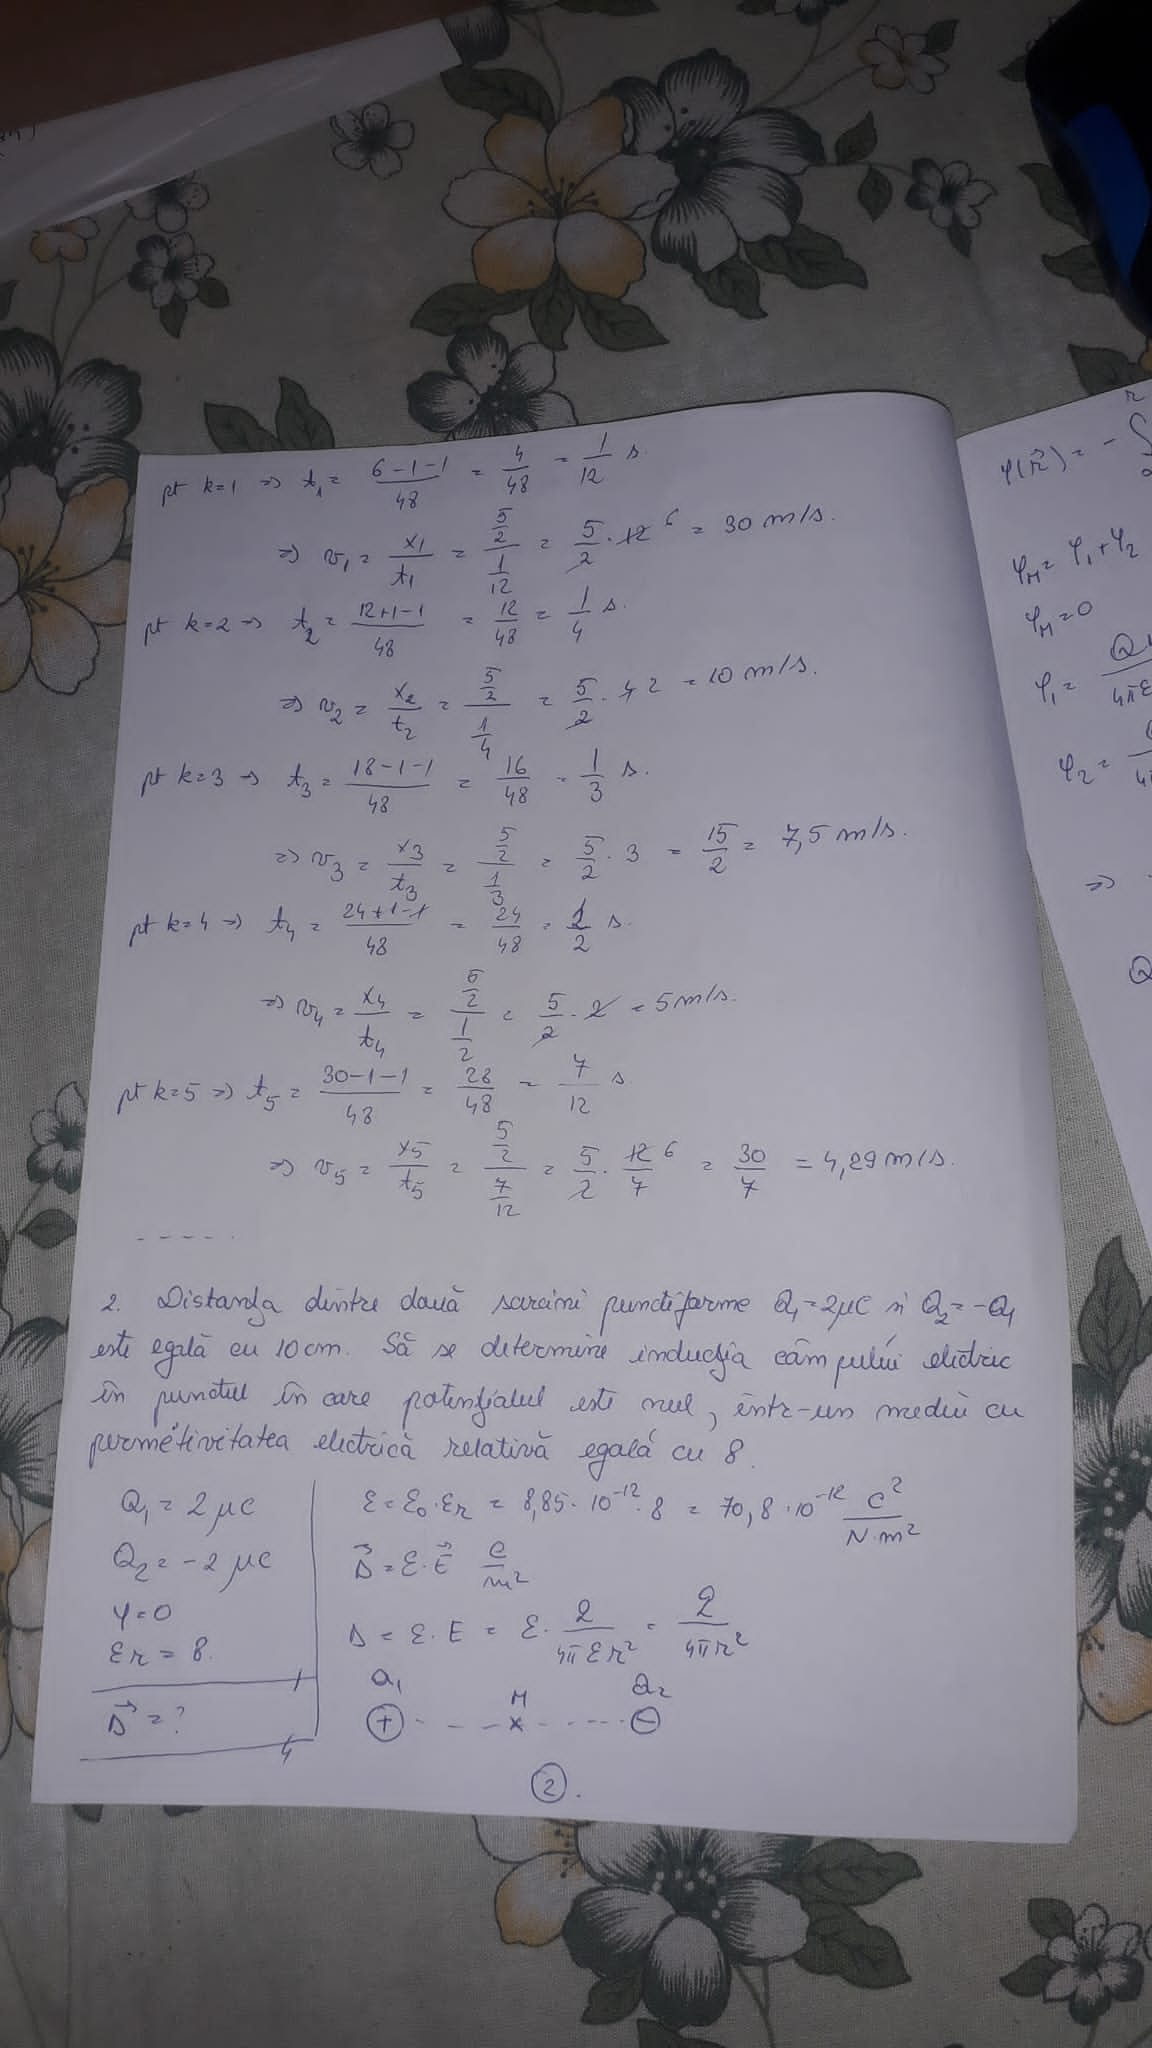 pt k=1 => t₁ = (6-1-1)/48 = 4/48 = 1/12 s.
=> v₁ = x₁/t₁ = (5/2)/(1/12) = 5/2 · 12 6 = 30 m/s.
pt k=2 => t₂ = (12+1-1)/48 = 12/48 = 1/4 s.
=> v₂ = x₂/t₂ = (5/2)/(1/4) = 5/2 · 4 2 = 10 m/s.
pt k=3 => t₃ = (18-1-1)/48 = 16/48 = 1/3 s.
=> v₃ = x₃/t₃ = (5/2)/(1/3) = 5/2 · 3 = 15/2 = 7,5 m/s.
pt k=4 => t₄ = (24+1-1)/48 = 24/48 = 1/2 s.
=> v₄ = x₄/t₄ = (5/2)/(1/2) = 5/2 · 2 = 5 m/s.
pt k=5 => t₅ = (30-1-1)/48 = 28/48 = 7/12 s
=> v₅ = x₅/t₅ = (5/2)/(7/12) = 5/2 · 12/7 6 = 30/7 = 4,29 m/s.
- - - - -
2. Distanța dintre două sarcini punctiforme Q₁ = 2μC și Q₂ = -Q₁
este egală cu 10 cm. Să se determine inducția câmpului electric
în punctul în care potențialul este nul, într-un mediu cu
permetivitatea electrică relativă egală cu 8.
Q₁ = 2 μC
Q₂ = -2 μC
φ = 0
εr = 8.
D⃗ = ?
ε = ε₀·εr = 8,85·10⁻¹²·8 = 70,8·10⁻¹² C²/(N·m²)
D⃗ = ε·E⃗ C/m²
D = ε·E = ε· Q/(4πεr²) = Q/(4πr²)
Q₁ M Q₂
⊕ - - - x - - - ⊖
2.
φ(r⃗) = - ∫
φM = φ₁+φ₂
φM = 0
φ₁ =
φ₂ =
=>
Q